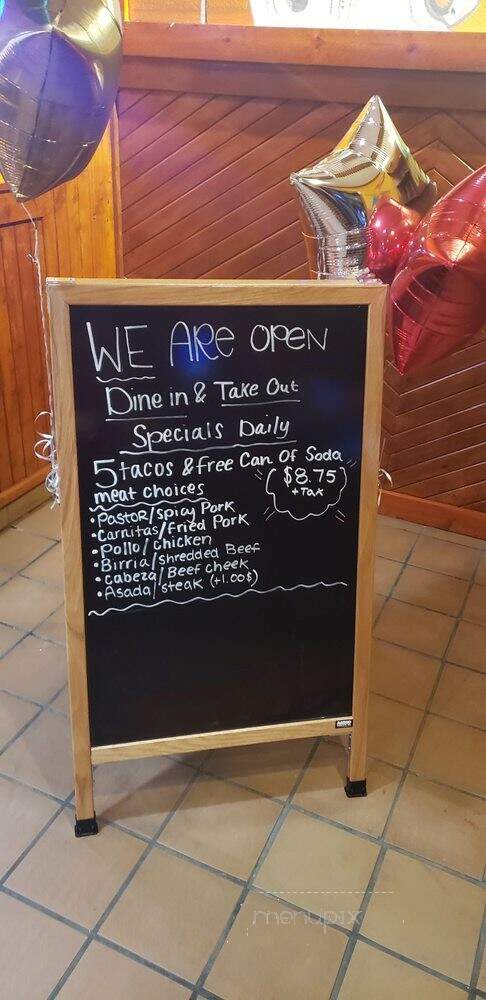 WE ARe OPEN
Dine in & Take Out
Specials Daily
5 tacos & free Can Of Soda
$8.75
+Tax
meat choices
• Pastor/spicy Pork
• Carnitas/fried Pork
• Pollo/chicken
• Birria/shredded Beef
• cabeza/Beef cheek
• Asada/steak (+1.00$)
menupix